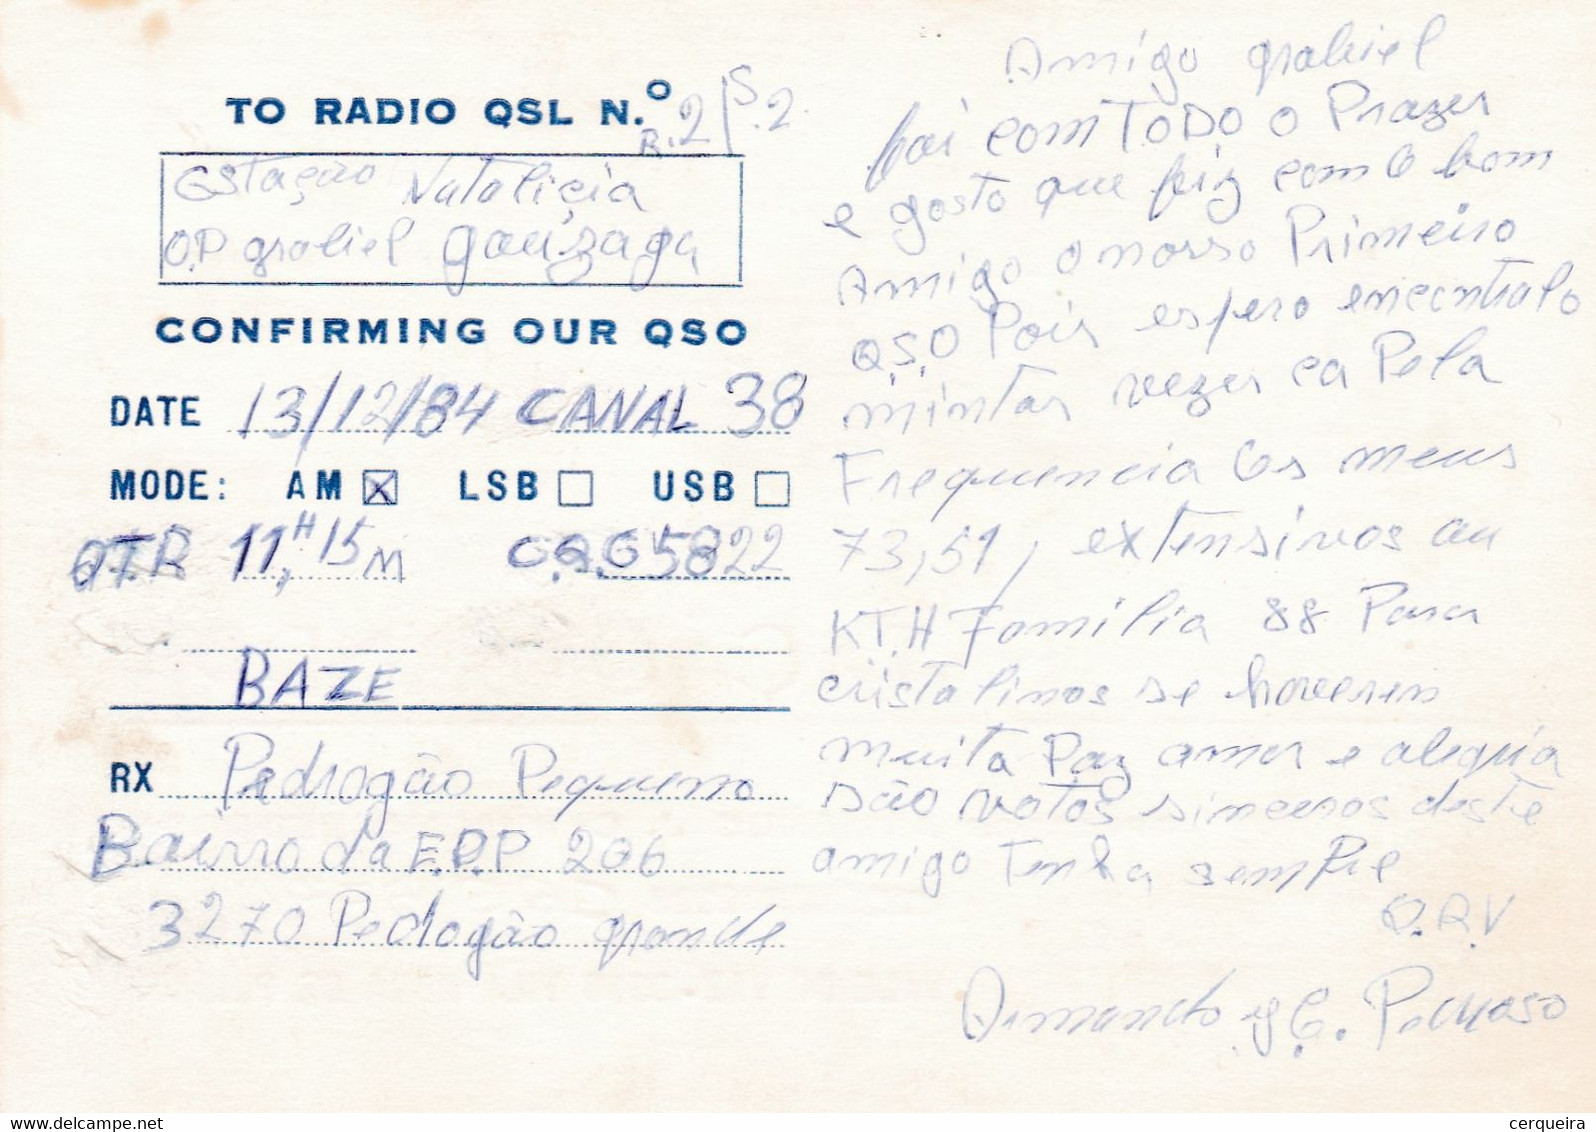 TO RADIO QSL N.º R.2/S.2
Estação Natalicia
O.P grabiel gouzaga
CONFIRMING OUR QSO
DATE 13/12/84 CANAL 38
MODE: AM ☒ LSB ☐ USB ☐
QTR 11H,15M 5822
BAZE
RX Pedrogão Pequeno
Bairro da E.D.P 206
3270 Pedogão grande
Amigo grabiel
foi com TODO o Prazer
e gosto que fiz com o bom
Amigo o nosso Primeiro
Q.S.O Pois espero encontralo
mintas vezes ca Pela
Frequencia Os meus
73,51, extensivos au
KT.H Familia 88 Para
cristalinos se hoverem
muita Paz amor e alegria
são votos sinceros deste
amigo Tenha semPre
Q.R.V
Armando G. Pedroso
www.delcampe.net
cerqueira